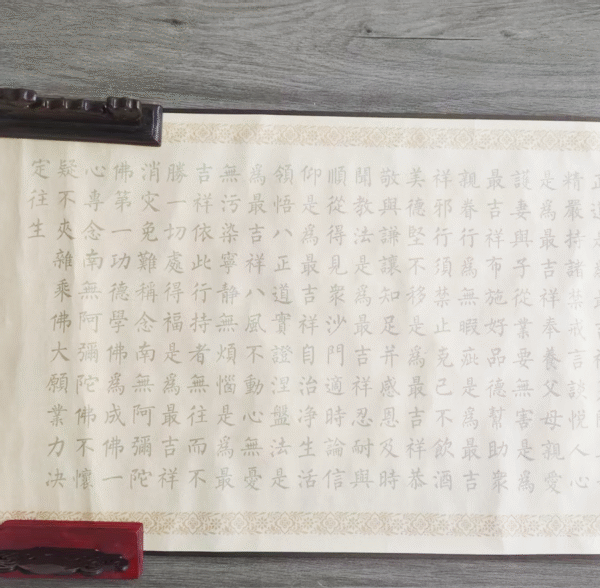 精嚴持諸禁戒言談悅人心
是爲最吉祥奉養父母親愛
護妻與子從業要無害是爲
最吉祥布施好品德幫助衆
親眷行爲無暇疵是爲最吉
祥邪行須禁止克己不飲酒
美德堅不移是爲最吉祥恭
敬與謙讓知足并感恩及時
聞教法是爲最吉祥忍耐與
順從得見衆沙門適時論信
仰是爲最吉祥自治净生活
領悟八正道實證涅盤法是
爲最吉祥八風不動心無憂
無污染寧静無煩惱是爲最
吉祥依此行持者無往而不
勝一切處得福是爲最吉祥
消灾免難稱念南無阿彌陀
佛第一功德學佛爲成佛一
心專念南無阿彌陀佛不懷
疑不夾雜乘佛大願業力决
定往生